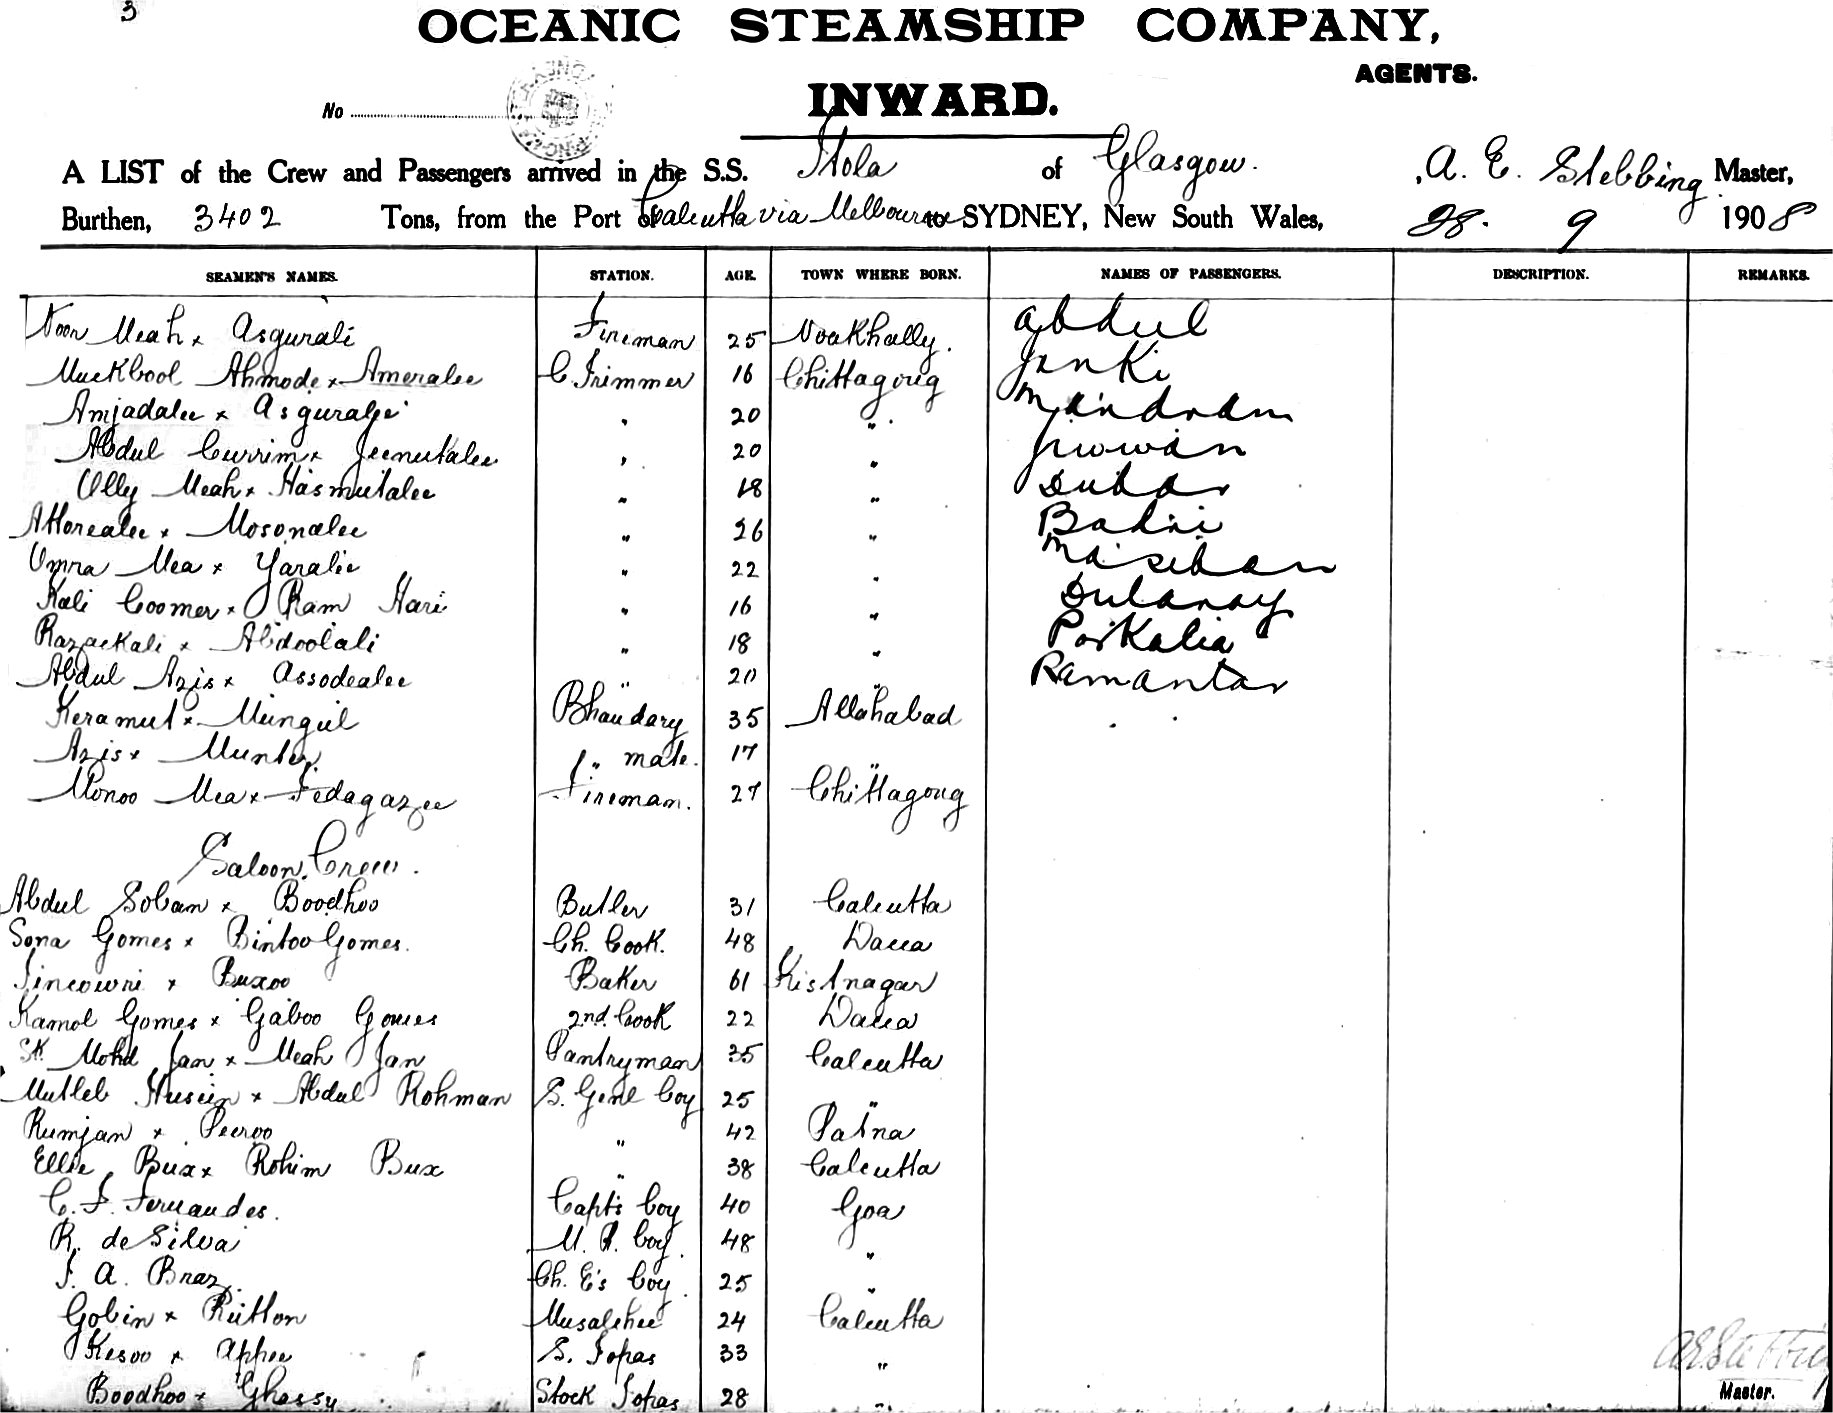 3
OCEANIC STEAMSHIP COMPANY,
AGENTS.
INWARD.
No
A LIST of the Crew and Passengers arrived in the S.S. Itola of Glasgow. A. E. Stebbing Master,
Burthen, 3402 Tons, from the Port of Calcutta via Melbourne to SYDNEY, New South Wales, 28. 9 1908
SEAMEN'S NAMES. STATION. AGE. TOWN WHERE BORN. NAMES OF PASSENGERS. DESCRIPTION. REMARKS.
Noor Meah x Asgurali Fireman 25 Noakhally. Abdul
Muckbool Ahmode x Ameralee C. Trimmer 16 Chittagong Janki
Amjadalee x Asguralie " 20 " Mandram
Abdul Currim x Jeenutalee " 20 " Juwan
Olly Meah x Hasmutalee " 18 " Dubar
Attorealee x Mosonalee " 26 " Badri
Omra Mea x Yaralie " 22 "
Kali Coomer x Ram Hari " 16 "
Razackali x Abdoolali " 18 "
Abdul Azis x Assodealee " 20 " Ramantar
Keramut x Mungul Bhaudary 35 Allahabad
Azis x " mate. 17 "
Monoo Mea x Fedagazee Fireman. 27 Chittagong
Saloon Crew.
Abdul Soban x Boodhoo Butler 31 Calcutta
Sona Gomes x Bintoo Gomes. Ch. Cook. 48 Dacca
Tincowri x Buxoo Baker 61 Kistnagar
Kamol Gomes x Gaboo Gomes 2nd Cook 22 Dacca
Sk. Mohd Jan x Meah Jan Pantryman 35 Calcutta
Mutleb Husein x Abdul Rohman S. Genl boy 25 "
Rumjan x Peeroo " 42 Patna
Ellie Bux x Rohim Bux " 38 Calcutta
C. F. Fernandes. Capt's boy 40 Goa
R. de Silva boy. 48 "
J. A. Braz. Ch. E's boy. 25 "
Gobin x Rutton Musalchee 24 Calcutta
Kesoo x Appee S. Topas 33 "
Boodhoo x Ghassy Stock Topas 28 "
Master.